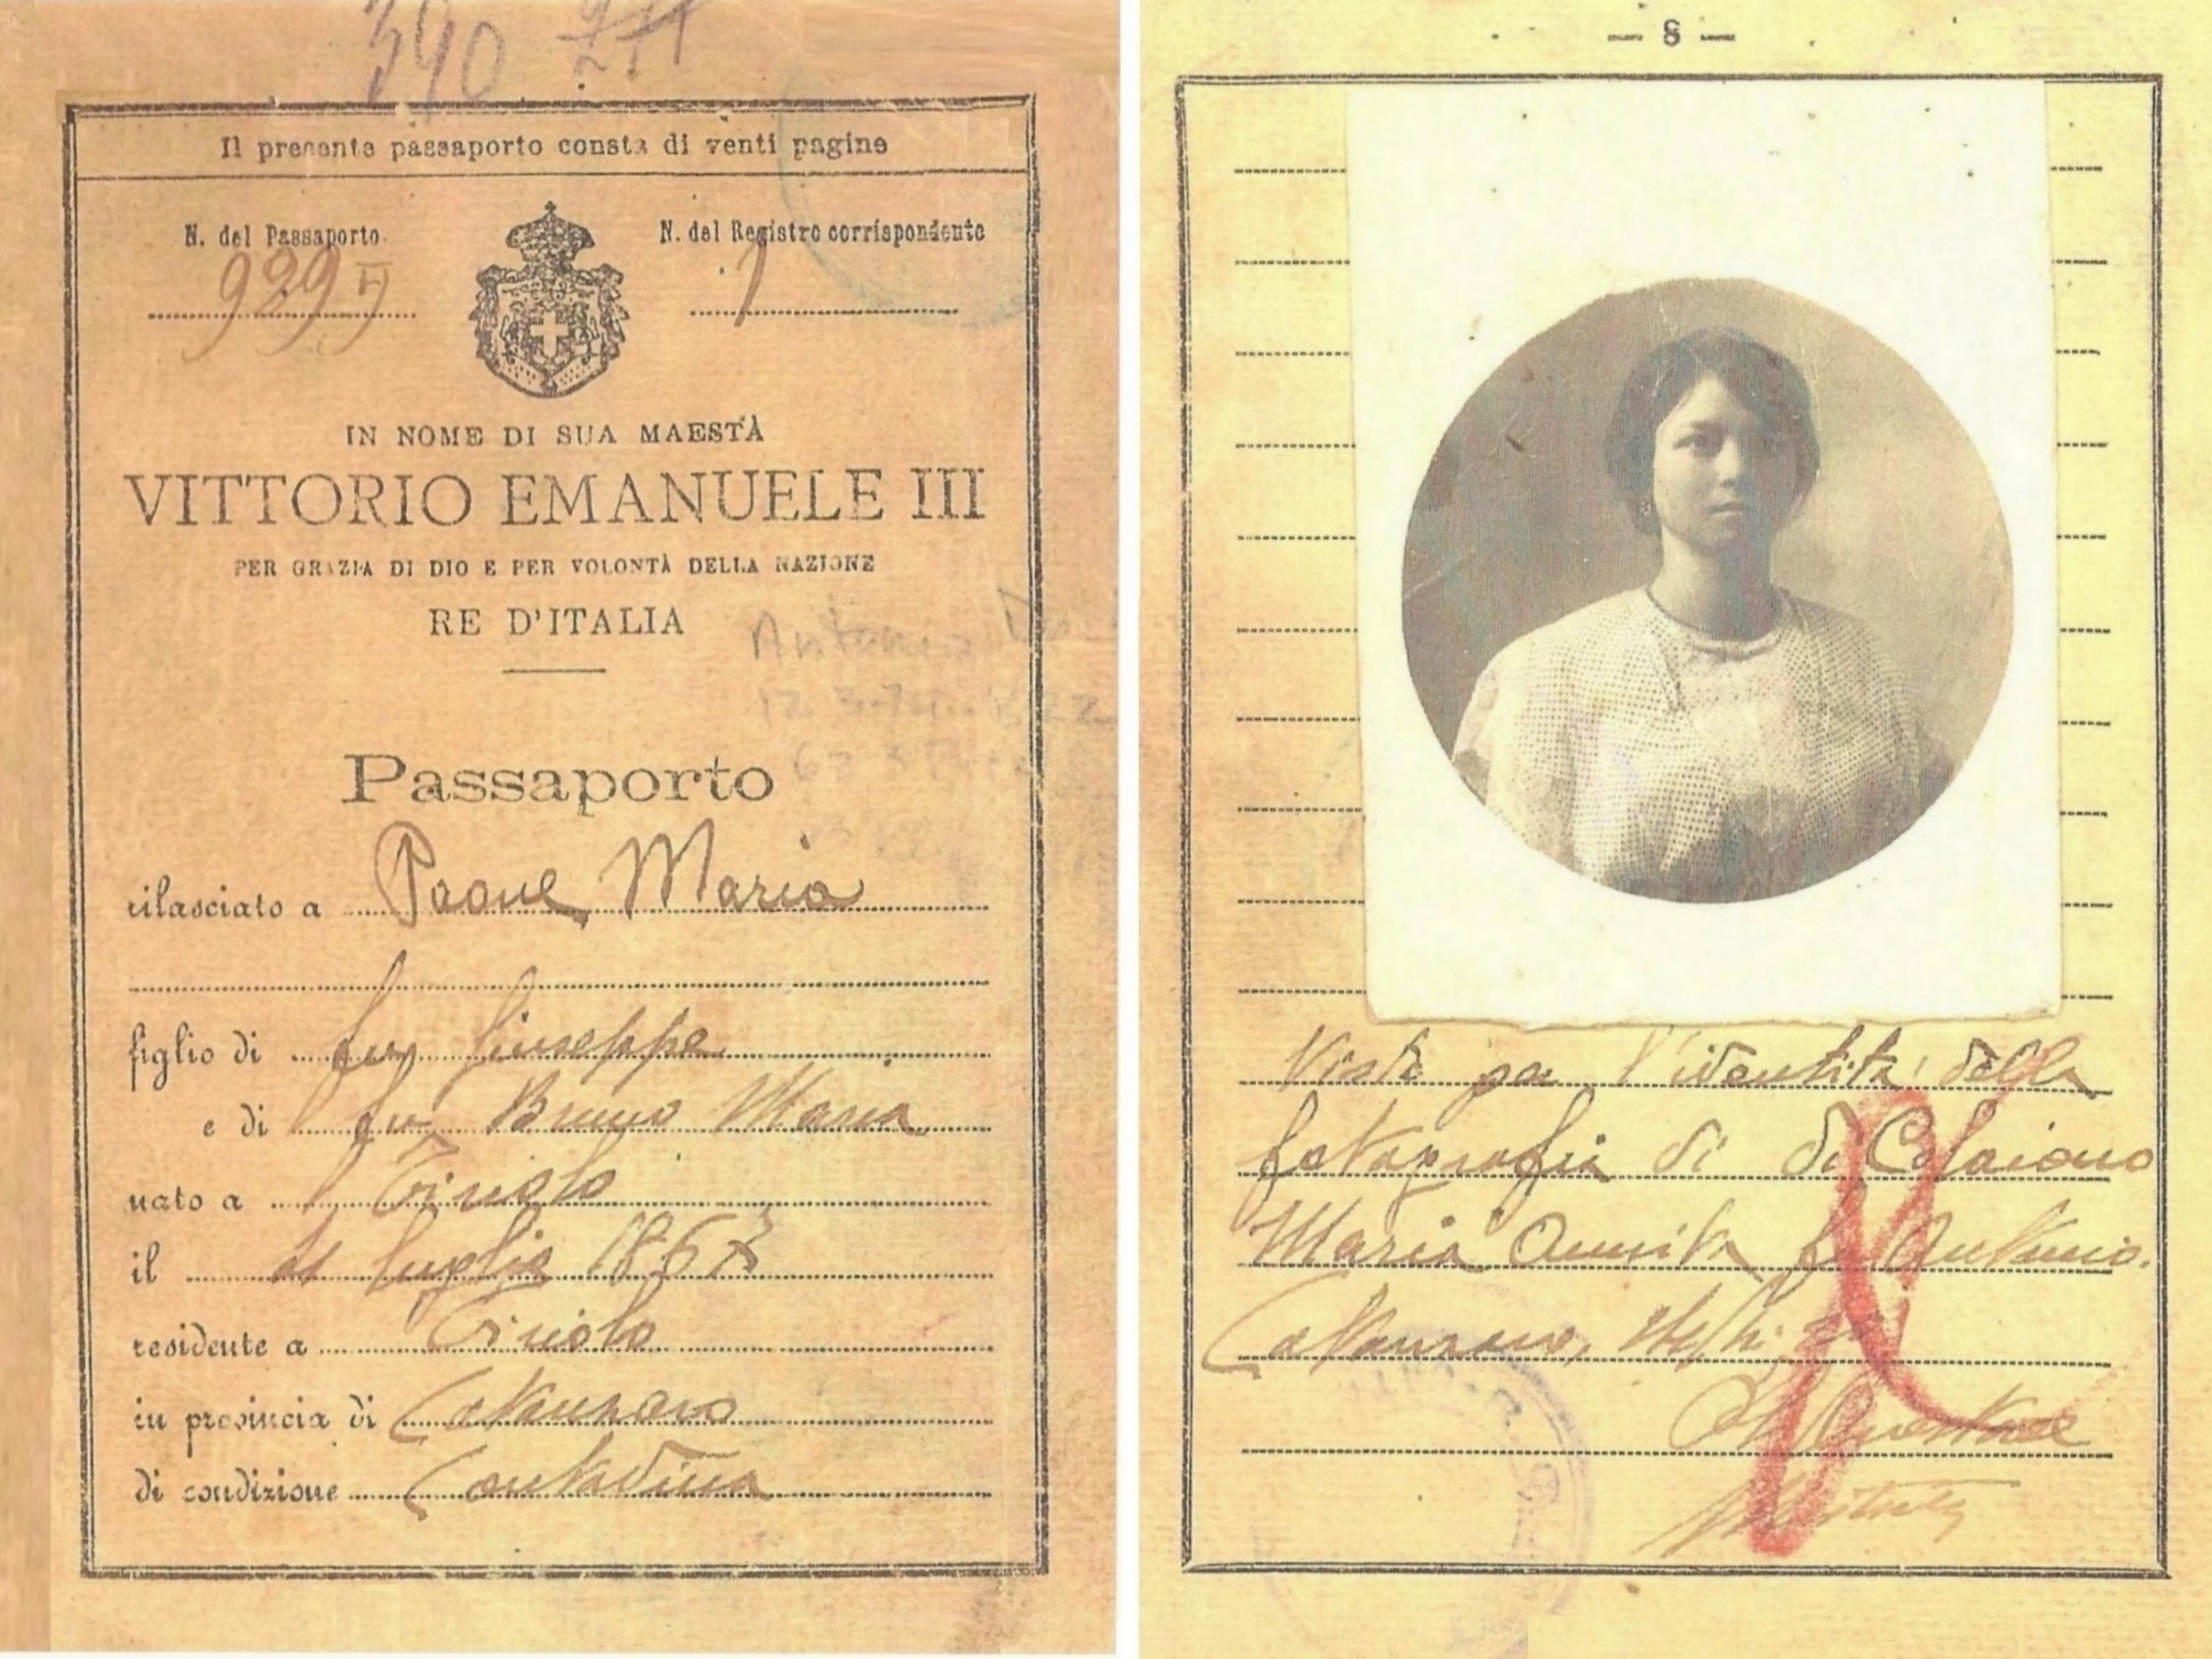 390
Il presente passaporto consta di venti pagine
N. del Passaporto
N. del Registro corrispondente
929
1
IN NOME DI SUA MAESTÀ
VITTORIO EMANUELE III
PER GRAZIA DI DIO E PER VOLONTÀ DELLA NAZIONE
RE D'ITALIA
Antonio
Passaporto
rilasciato a Paone Maria
figlio di fu Giuseppe
e di fu Bruno Maria
nato a Tiriolo
il luglio 1867
residente a Tiriolo
in provincia di Catanzaro
di condizione Contadina
— 8 —
Visto per l'identità della
fotografia di di Colaiono
Maria Annita fu Antonio.
Catanzaro,
Il Questore